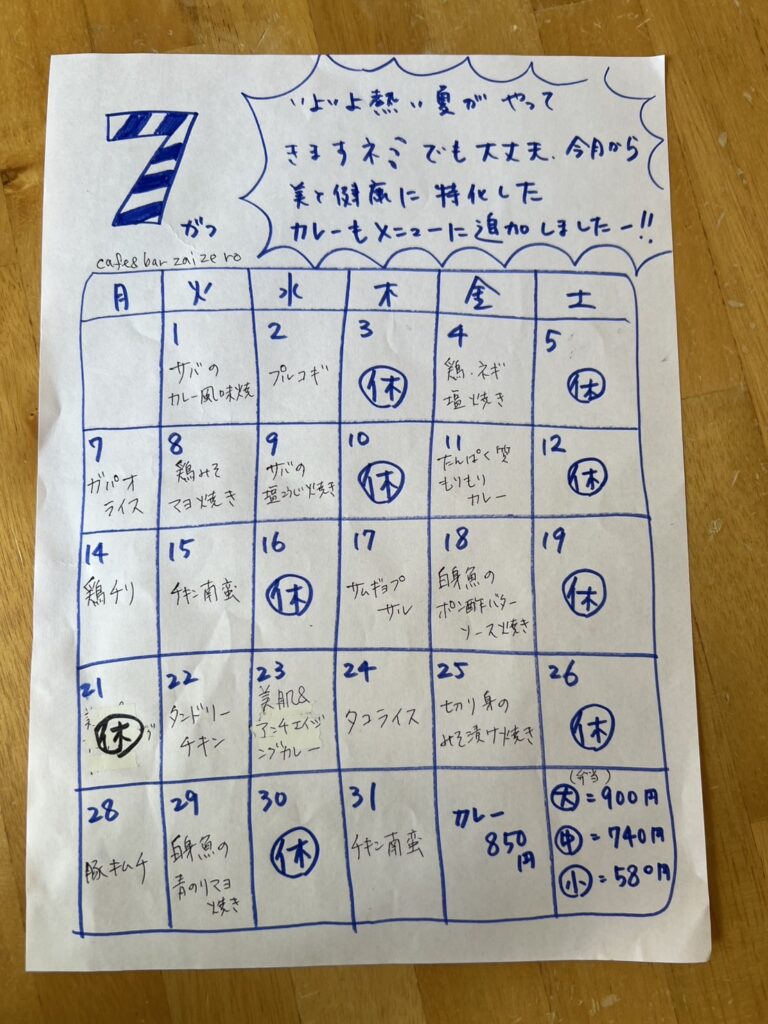 7
がつ
いよいよ熱い夏がやって
きますネミでも大丈夫、今月から
美と健康に特化した
カレーもメニューに追加しましたー!!
cafe&bar zaizero
月 火 水 木 金 土
1
サバの
カレー風味焼
2
プルコギ
3
休
4
鶏・ネギ
塩焼き
5
休
7
ガパオ
ライス
8
鶏みそ
マヨ焼き
9
サバの
塩こうじ焼き
10
休
11
たんぱく質
もりもり
カレー
12
休
14
鶏チリ
15
チキン南蛮
16
休
17
サムギョプ
サル
18
白身魚の
ポン酢バター
ソース焼き
19
休
21
休
22
タンドリー
チキン
23
美肌&
アンチエイジ
ングカレー
24
タコライス
25
切り身の
みそ漬け焼き
26
休
28
豚キムチ
29
白身魚の
青のりマヨ
焼き
30
休
31
チキン南蛮
カレー
850
円
(弁当)
大=900円
中=740円
小=580円